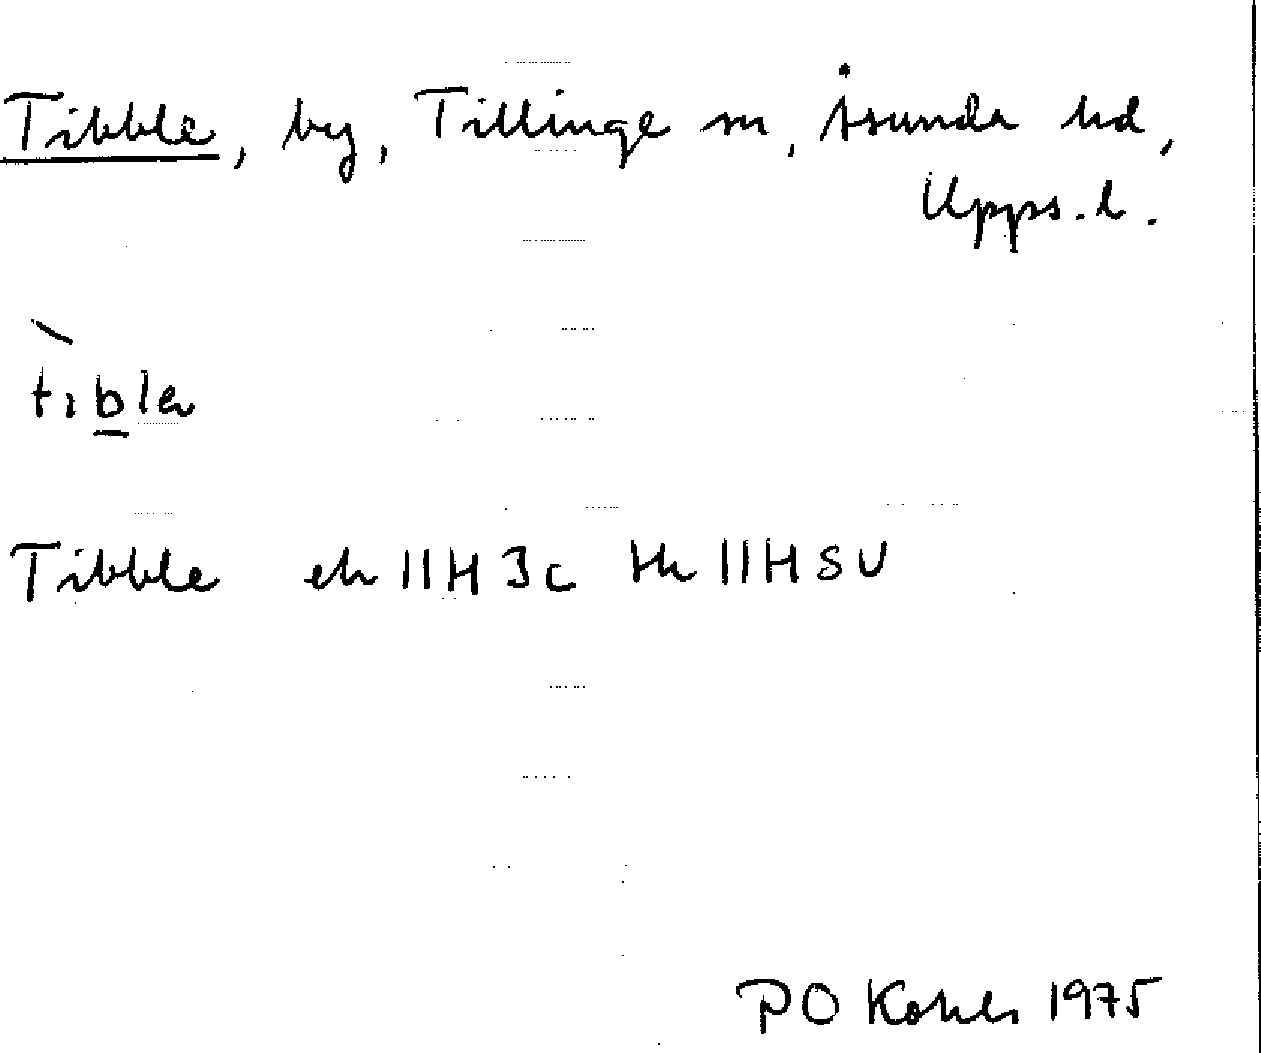 Tibble, by, Tillinge sn, Åsunda hd,
Upps.l.
tiblə
Tibble ek 11H 3c tk 11H SV
PO 1975